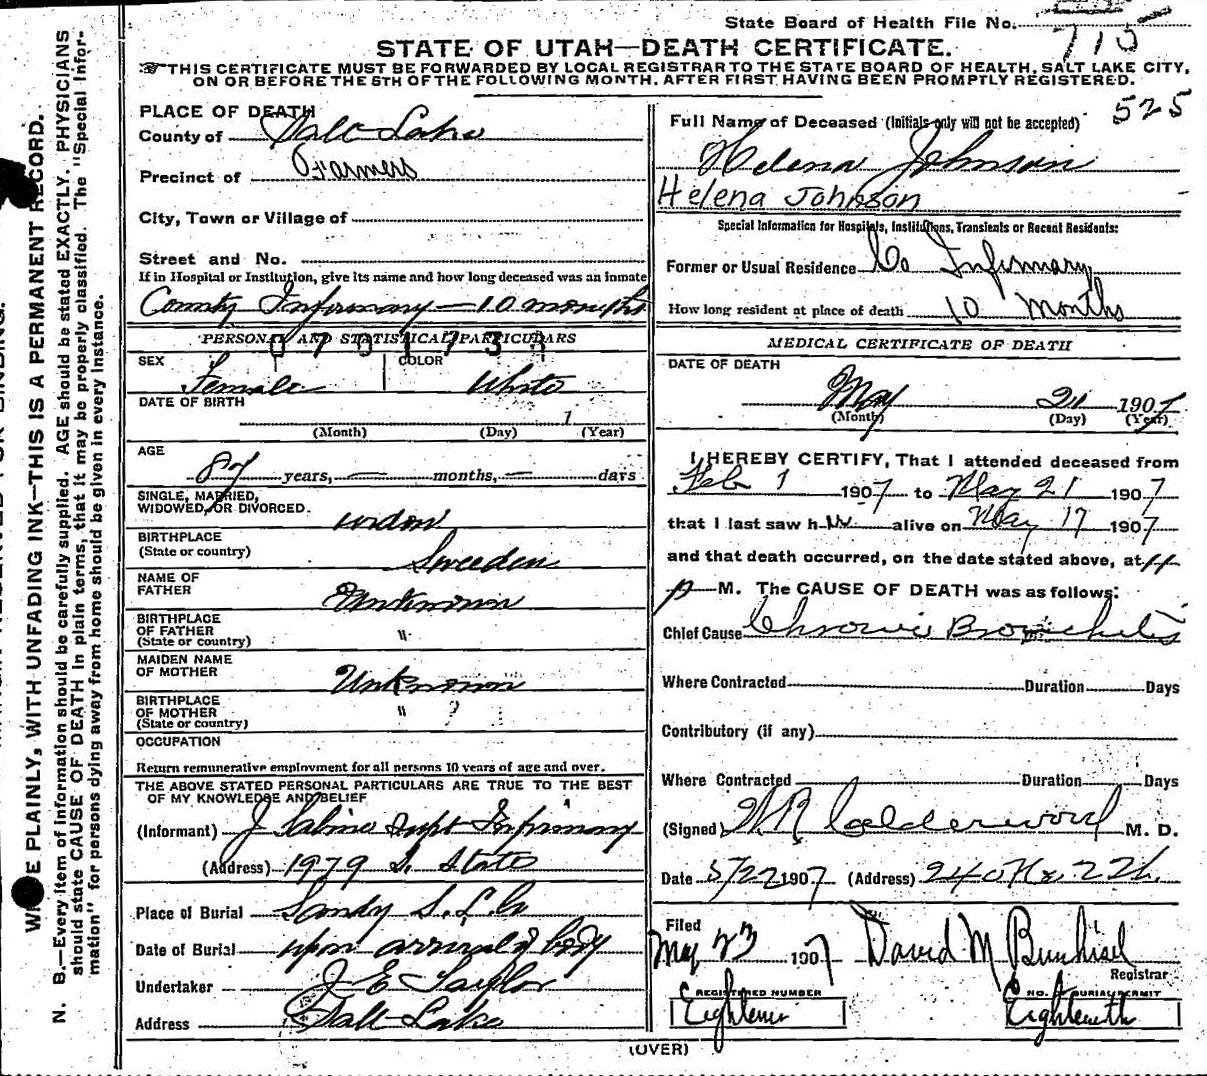 State Board of Health File No. 715
STATE OF UTAH—DEATH CERTIFICATE.
THIS CERTIFICATE MUST BE FORWARDED BY LOCAL REGISTRAR TO THE STATE BOARD OF HEALTH, SALT LAKE CITY,
ON OR BEFORE THE 5TH OF THE FOLLOWING MONTH, AFTER FIRST HAVING BEEN PROMPTLY REGISTERED.
525
PLACE OF DEATH
County of Salt Lake
Precinct of Farmers
City, Town or Village of
Street and No.
If in Hospital or Institution, give its name and how long deceased was an inmate
County Infirmary — 10 months
PERSONAL AND STATISTICAL PARTICULARS
SEX
Female
COLOR
White
DATE OF BIRTH
1
(Month) (Day) (Year)
AGE
87 years, — months, — days
SINGLE, MARRIED,
WIDOWED, OR DIVORCED.
widow
BIRTHPLACE
(State or country)
Sweeden
NAME OF
FATHER
Unknown
BIRTHPLACE
OF FATHER
(State or country)
"
MAIDEN NAME
OF MOTHER
Unknown
BIRTHPLACE
OF MOTHER
(State or country)
" ?
OCCUPATION
Return remunerative employment for all persons 10 years of age and over.
THE ABOVE STATED PERSONAL PARTICULARS ARE TRUE TO THE BEST
OF MY KNOWLEDGE AND BELIEF
(Informant) J Sabine Supt Infirmary
(Address) 1979 S. State
Place of Burial Sandy S. L. Co
Date of Burial upon arrival of body
Undertaker J E Taylor
Address Salt Lake
Full Name of Deceased (Initials only will not be accepted)
Helena Johnson
Helena Johnson
Special Information for Hospitals, Institutions, Transients or Recent Residents:
Former or Usual Residence Co Infirmary
How long resident at place of death 10 Months
MEDICAL CERTIFICATE OF DEATH
DATE OF DEATH
May 21 1907
(Month) (Day) (Year)
I HEREBY CERTIFY, That I attended deceased from
Feb 1 1907 to May 21 1907
that I last saw h er alive on May 17 1907
and that death occurred, on the date stated above, at 11
p M. The CAUSE OF DEATH was as follows:
Chief Cause Chronic Bronchitis
Where Contracted Duration Days
Contributory (if any)
Where Contracted Duration Days
(Signed) W R Calderwood M. D.
Date 5/22 1907 (Address)
Filed
May 23 1907 David M Bunhisel
Registrar
REGISTERED NUMBER
NO. BURIAL PERMIT
Eighteenth
N. B.—Every item of information should be carefully supplied. AGE should be stated EXACTLY. PHYSICIANS
should state CAUSE OF DEATH in plain terms, that it may be properly classified. The "Special Infor-
mation" for persons dying away from home should be given in every instance.
E PLAINLY, WITH UNFADING INK—THIS IS A PERMANENT RECORD.
(OVER)